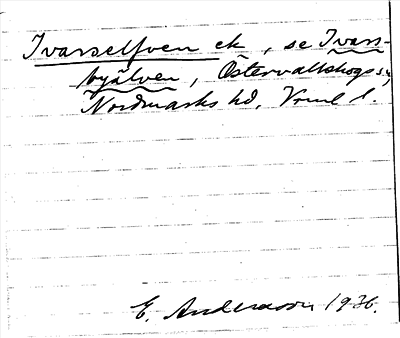 Ivarselfven ek, se Ivars-
byälven, Östervallskogs sn,
Nordmarks hd, Vrml l.
E. Andersson 1936.